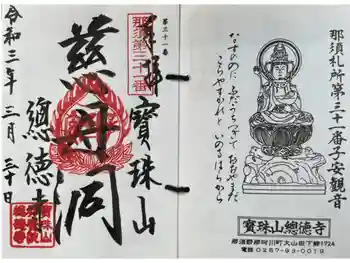 那須札所第三十一番子安観音
なすのに ふだうちつゞて おおやまだ
こらやすかれと いのるはゝかも
寶珠山總徳寺
那須郡那珂川町大山田下郷1724
電話 0287-93-0019
第三十一番
那須第三十一番
奉拝
寶珠山
慈母洞
總徳寺
令和三年 三月 三十日